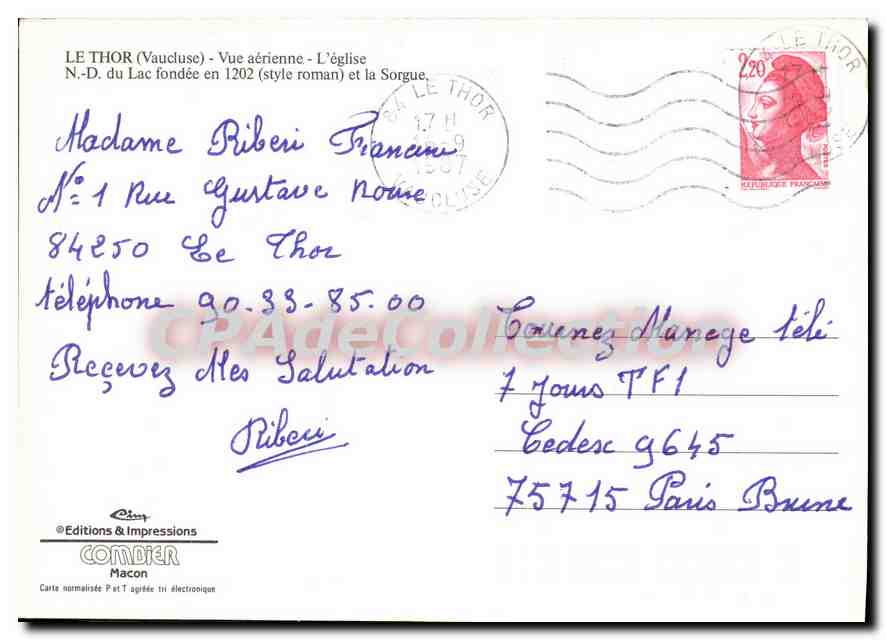 LE THOR (Vaucluse) - Vue aérienne - L'église
N.-D. du Lac fondée en 1202 (style roman) et la Sorgue.
84 LE THOR
17 H
9
1987
VAUCLUSE
2,20
POSTES
REPUBLIQUE FRANÇAISE
Madame Riberi Francine
N°= 1 Rue Gustave
84250 Le Thor
téléphone 90-33-85.00
Reçevez Mes Salutation
Riberi
Tournez Manege télé
7 Jours TF1
Cedex 9645
75715 Paris Brune
CPAdeCollection
Cim
©Editions & Impressions
COMBIER
Macon
Carte normalisée P et T agréée tri électronique